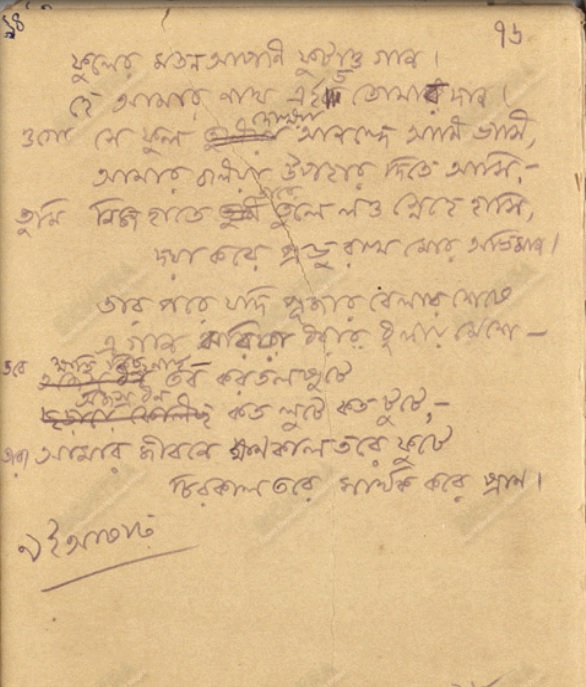 ১৪
৭৬
ফুলের মতন আপনি ফুটাও গান।
হে আমার নাথ এইত তোমার দান।
ওগো সে ফুল দেখিয়া আনন্দে আমি ভাসি,
আমার বলিয়া উপহার দিতে আসি,-
তুমি নিজ হাতে তারে তুলে লও স্নেহে হাসি,
দয়া করে প্রভু রাখ মোর অভিমান।
তার পরে যদি পূজার বেলার শেষে
এ গান ঝরিয়া ধরার ধূলায় মেশে -
তবে ক্ষতি কিছু নাই - তব করতলপুটে
অজস্র ধন কত লুটে কত টুটে,-
তারা আমার জীবনে ক্ষণকাল তরে ফুটে
চিরকাল তরে সার্থক করে প্রাণ।
৭ই আষাঢ়